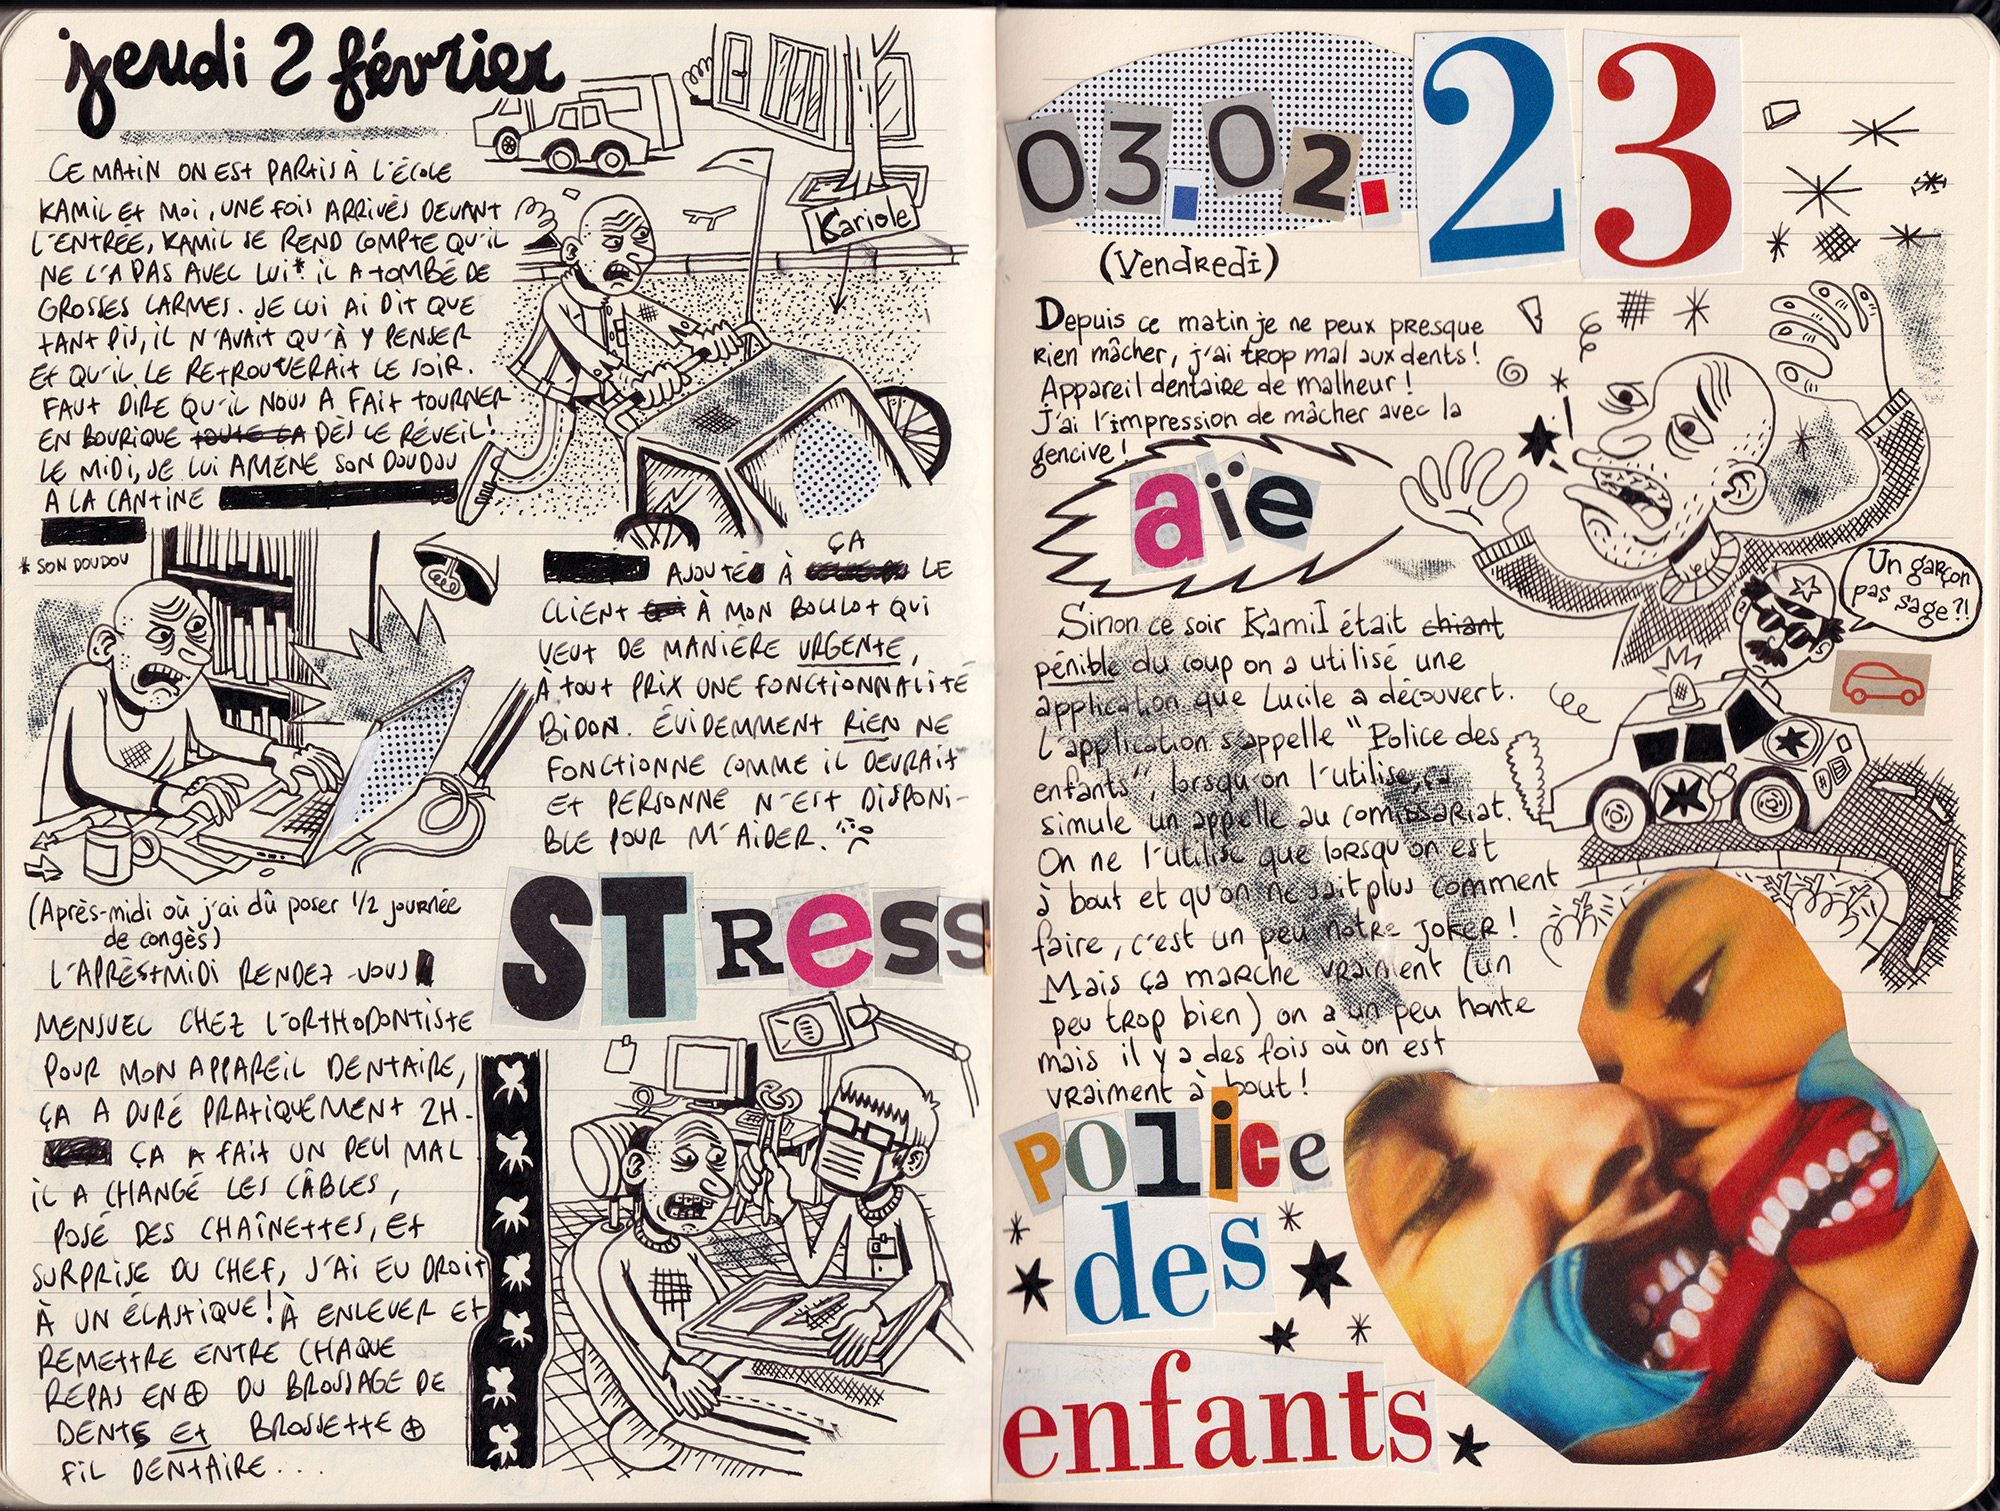 jeudi 2 février
CE MATIN ON EST PARTIS À L'ÉCOLE
KAMIL ET MOI, UNE FOIS ARRIVÉS DEVANT
L'ENTRÉE, KAMIL SE REND COMPTE QU'IL
NE L'A PAS AVEC LUI* IL A TOMBÉ DE
GROSSES LARMES. JE LUI AI DIT QUE
TANT PIS, IL N'AVAIT QU'À Y PENSER
ET QU'IL LE RETROUVERAIT LE SOIR.
FAUT DIRE QU'IL NOUS A FAIT TOURNER
EN BOURIQUE TOUTE ÇA DÈS LE RÉVEIL!
LE MIDI, JE LUI AMÈNE SON DOUDOU
A LA CANTINE
* SON DOUDOU
Kariole
ÇA
AJOUTÉ À LE
CLIENT QUI À MON BOULOT QUI
VEUT DE MANIÈRE URGENTE,
À TOUT PRIX UNE FONCTIONNALITÉ
BIDON. ÉVIDEMMENT RIEN NE
FONCTIONNE COMME IL DEVRAIT
ET PERSONNE N'EST DISPONI-
BLE POUR M'AIDER.
STRess
(Après-midi où j'ai dû poser 1/2 journée
de congès)
L'APRÈS-MIDI RENDEZ-VOUS
MENSUEL CHEZ L'ORTHODONTISTE
POUR MON APPAREIL DENTAIRE,
ÇA A DURÉ PRATIQUEMENT 2H.
ÇA A FAIT UN PEU MAL
IL A CHANGÉ LES CÂBLES,
POSÉ DES CHAÎNETTES, ET
SURPRISE DU CHEF, J'AI EU DROIT
À UN ÉLASTIQUE! À ENLEVER ET
REMETTRE ENTRE CHAQUE
REPAS EN ⊕ DU BROSSAGE DE
DENTS ET BROSSETTE ⊕
FIL DENTAIRE...
03.02.23
(Vendredi)
Depuis ce matin je ne peux presque
rien mâcher, j'ai trop mal aux dents!
Appareil dentaire de malheur!
J'ai l'impression de mâcher avec la
gencive!
aïe
Un garçon
pas sage?!
Sinon ce soir Kamil était chiant
pénible du coup on a utilisé une
application que Lucile a découvert.
L'application s'appelle "Police des
enfants", lorsqu'on l'utilise, ça
simule un appelle au comissariat.
On ne l'utilise que lorsqu'on est
à bout et qu'on ne sait plus comment
faire, c'est un peu notre joker!
Mais ça marche vraiment (un
peu trop bien) on a un peu honte
mais il y a des fois où on est
vraiment à bout!
police
des
enfants